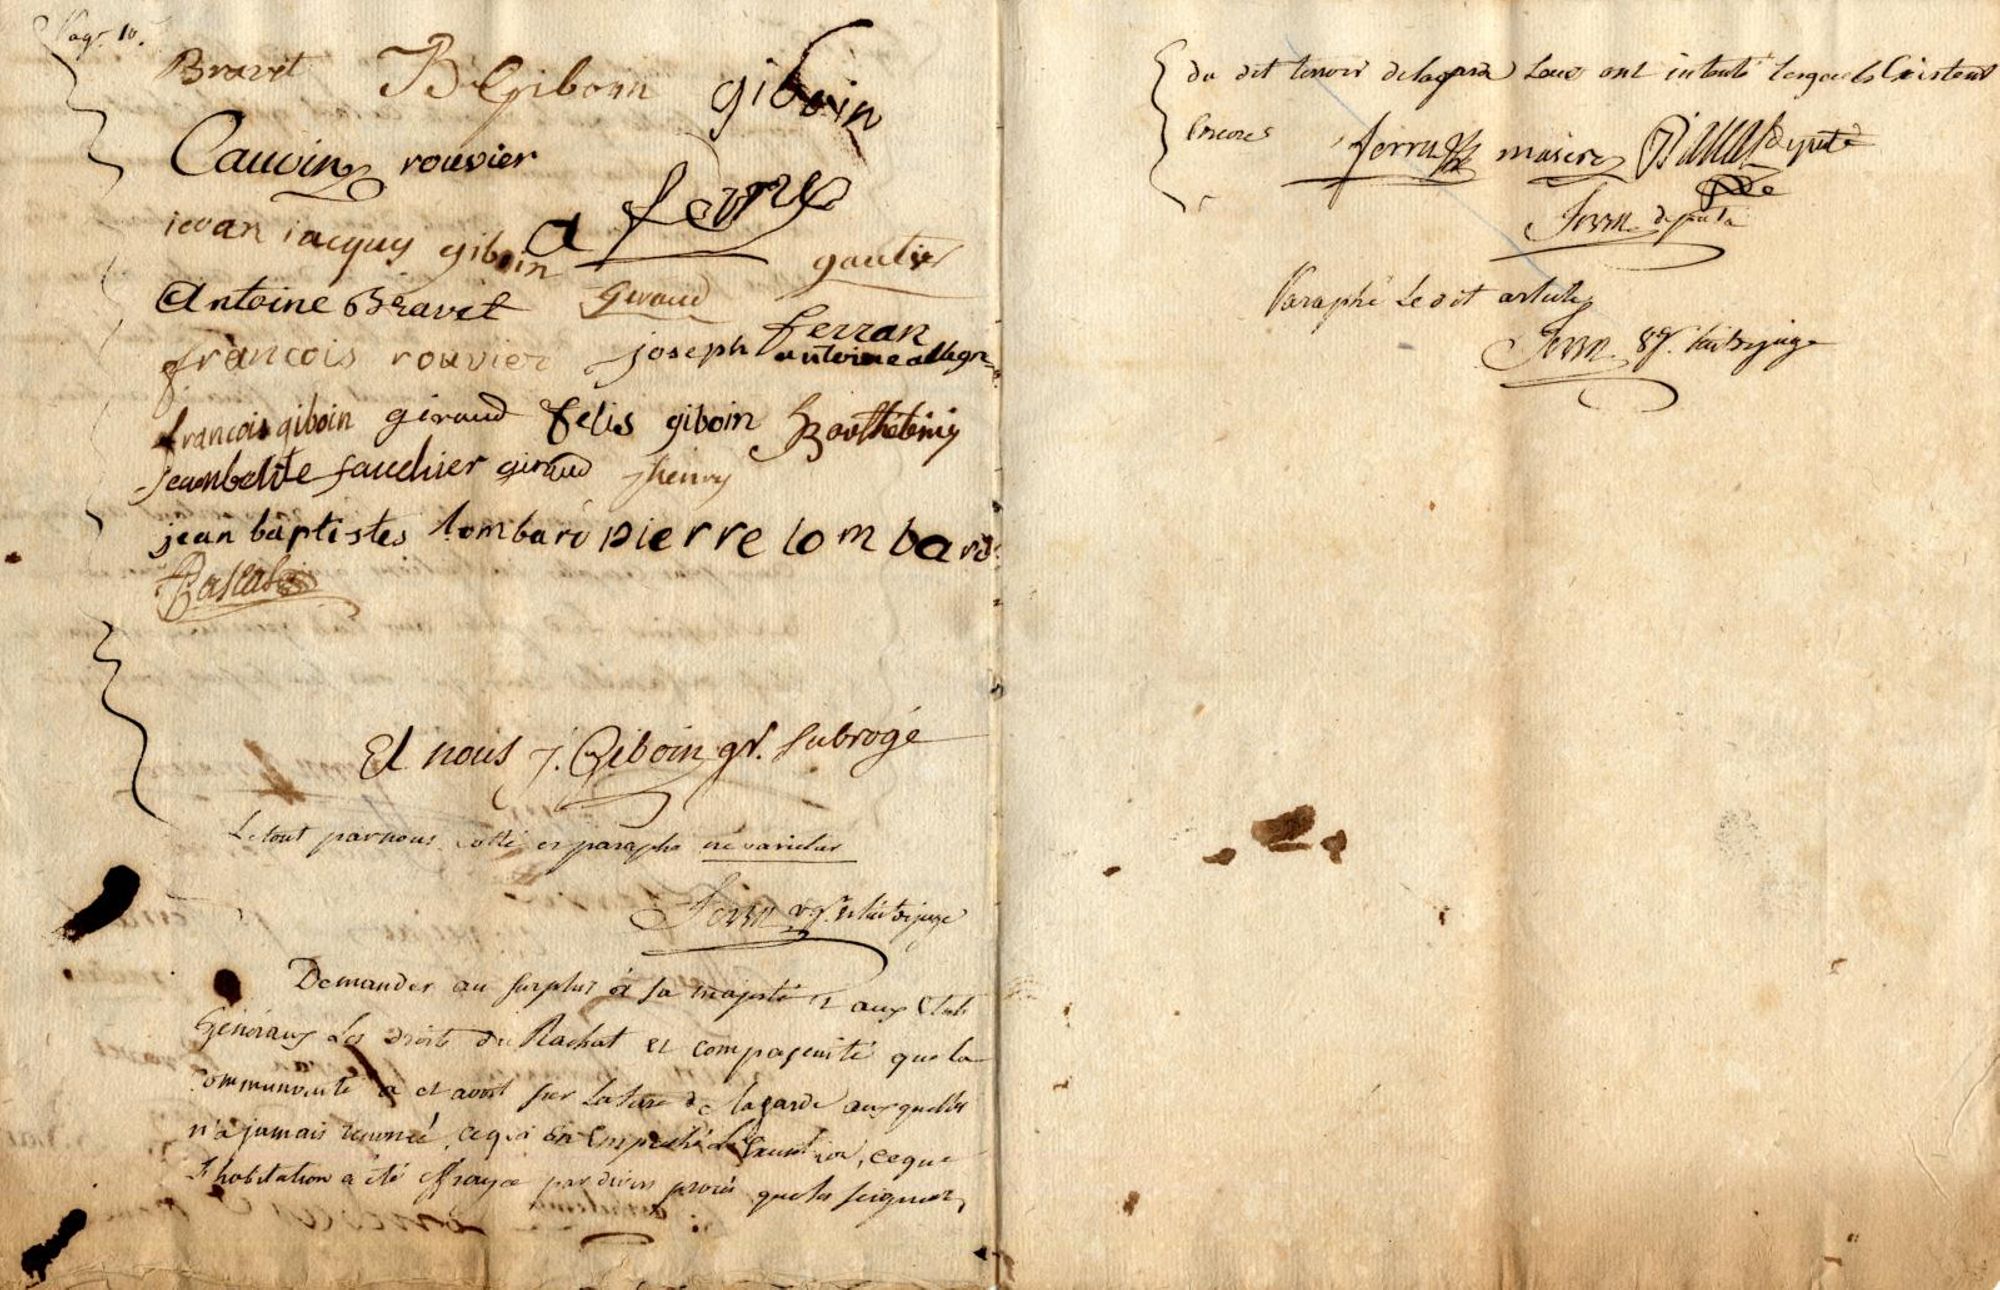 Pag. 10.
Bravet B Giboin giboin
Cauvin rouvier
a ferre
jean jacques giboin gautier
Antoine Bravet Giraud
francois rouvier joseph ferran
antoine allegre
francois giboin giraud felis giboin Barthelemy
jean batiste fauchier giraud henry
jean baptistes lombard pierre lombard
Pascalis
Et nous J. Giboin gr. subrogé
Le tout par nous cotté et paraphé ne varietur
Ferrn
Demander au surplus à sa majesté et aux Etats
Généraux Les droits du Rachat et que la
communauté a et avoit sur La terre de lagarde auxquelles
n'a jamais renoncé, ce qui en a empeché L'execution, ce que
L'habitation a été effrayée par divers procés que les seigneurs
du dit terroir de lagarde Leur ont intenté lesquels Existent
Encores
masere député
Ferrn deputé
Paraphé Le dit article
Ferrn